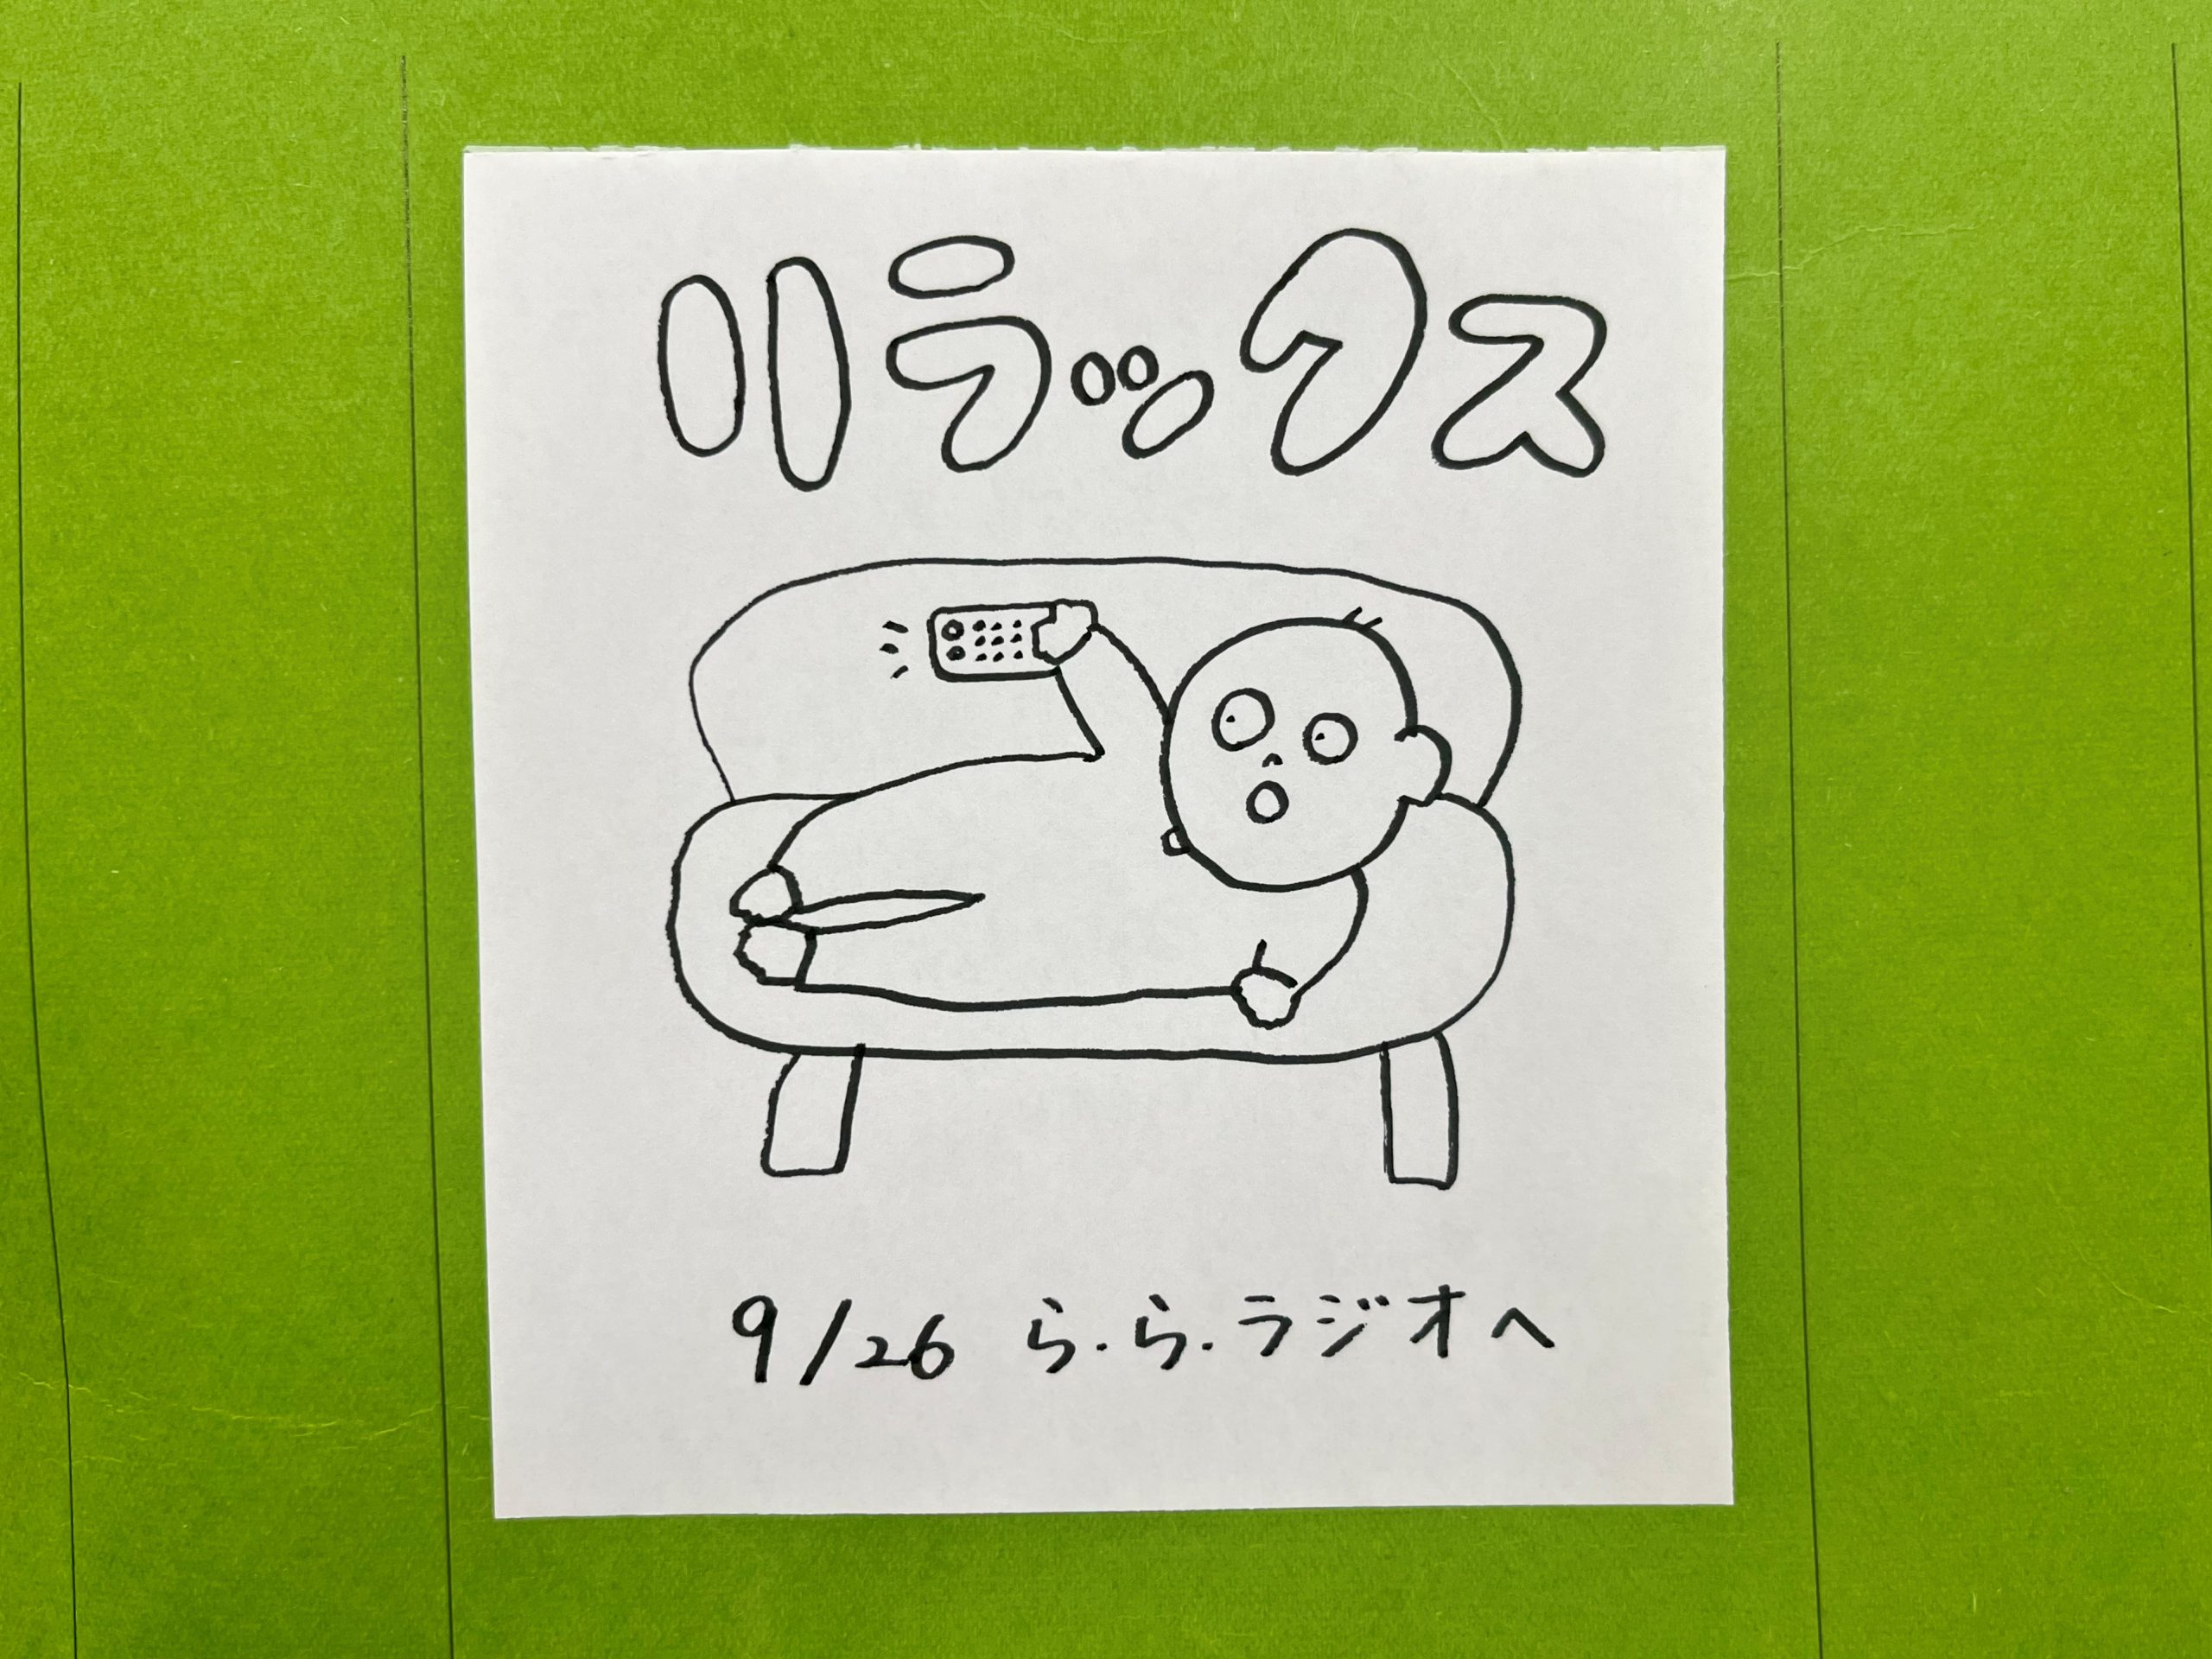 リラックス
9/26 ら.ら.ラジオへ